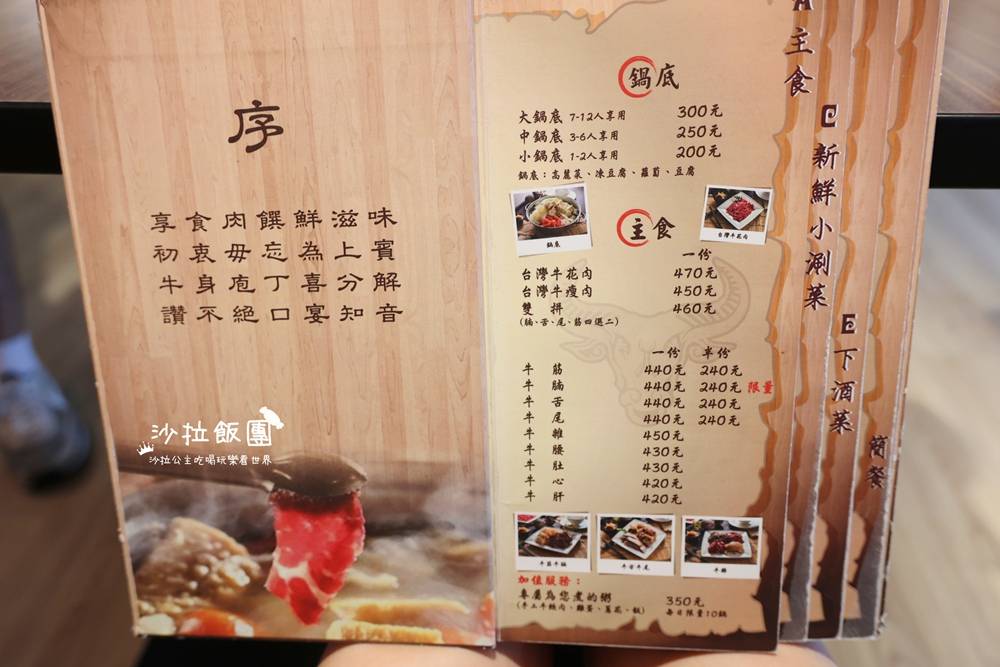 序
享食肉饌鮮滋味
初衷毋忘為上賓
牛身庖丁喜分解
讚不絕口宴知音
沙拉飯團
沙拉公主吃喝玩樂看世界
鍋底
大鍋底 7-12人享用 300元
中鍋底 3-6人享用 250元
小鍋底 1-2人享用 200元
鍋底：高麗菜、凍豆腐、蘿蔔、豆腐
鍋底
台灣牛花肉
主食
一份
台灣牛花肉 470元
台灣牛瘦肉 450元
雙拼 460元
(腩、舌、尾、筋四選二)
一份 半份
牛筋 440元 240元
牛腩 440元 240元 限量
牛舌 440元 240元
牛尾 440元 240元
牛雜 450元
牛腰 430元
牛肚 430元
牛心 420元
牛肝 420元
牛筋牛腩
牛舌牛尾
牛雜
加值服務：
專屬為您煮的粥 350元
(手工牛絞肉、雞蛋、蔥花、飯) 每日限量10鍋
主食
新鮮小涮菜
E 下酒菜
簡餐